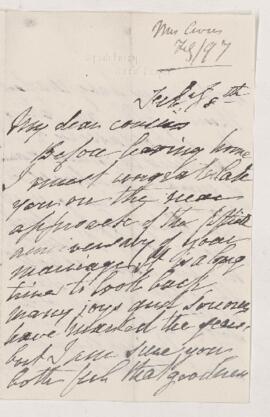 Mrs
Feb/97
Feby 8th
My dear cousin
Before leaving home
I must congratulate
you on the near
approach of the fiftieth
anniversary of your
marriage. It is a long
time to look back
many joys and sorrows
have marked the years
but I am sure you
both feel that goodness